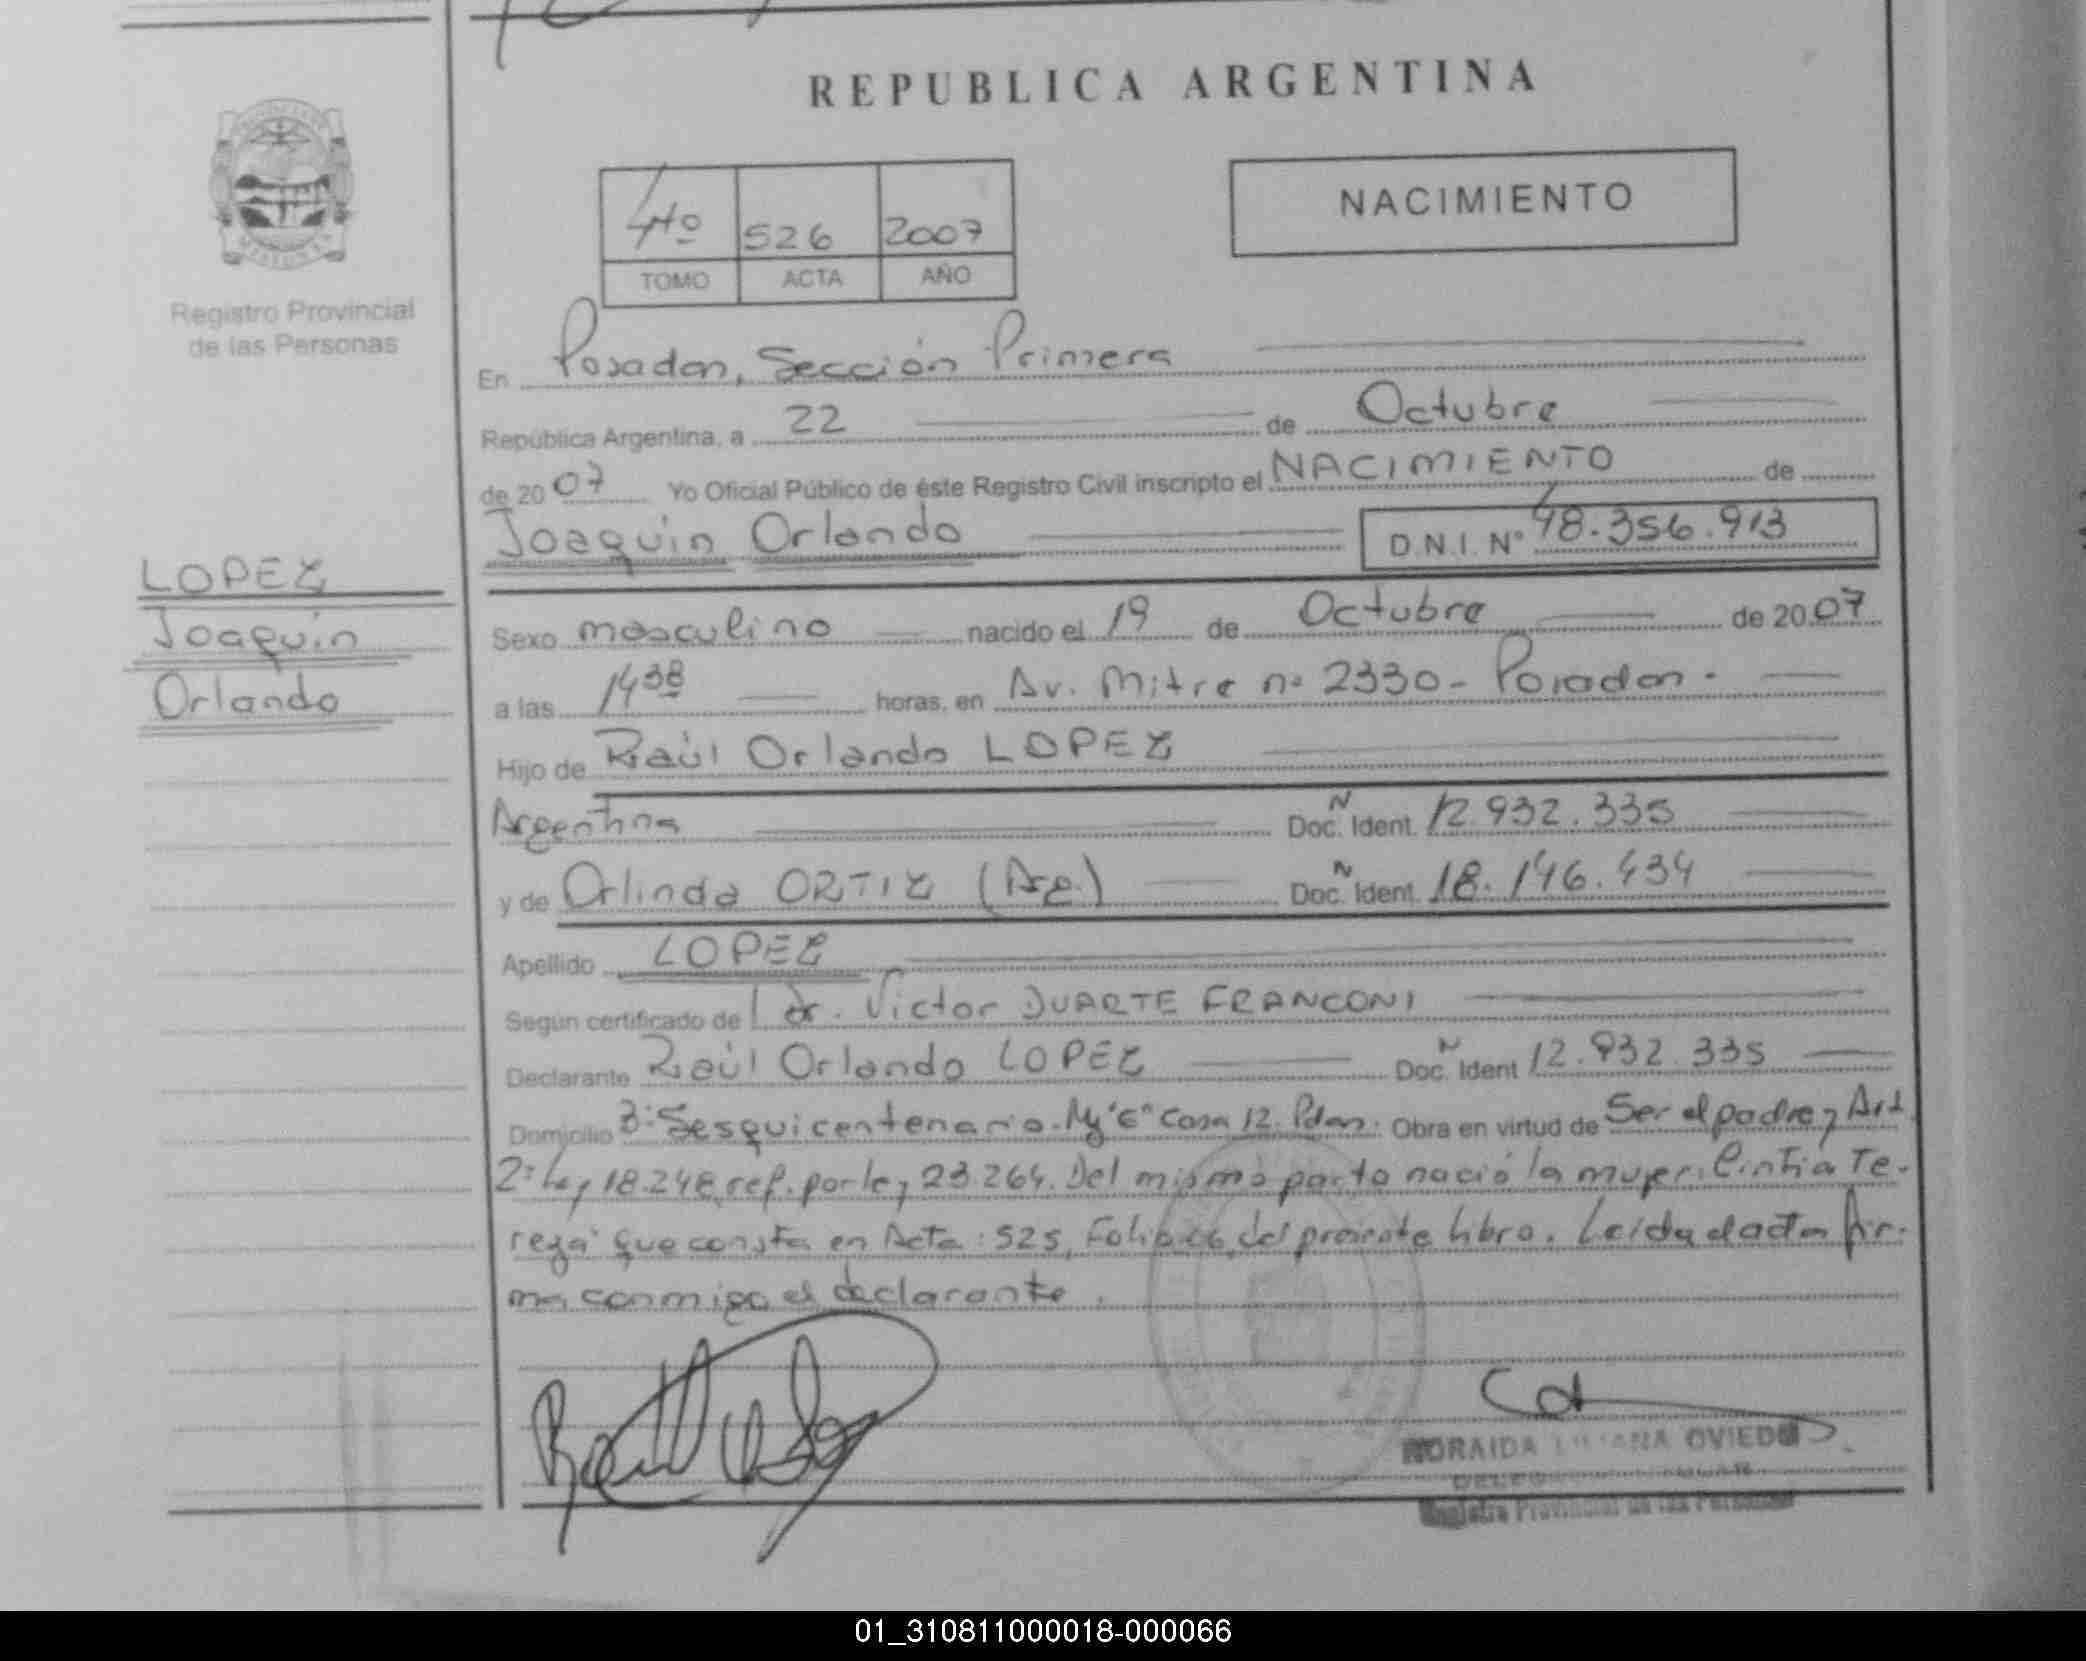 REPUBLICA ARGENTINA
4to 526 2007
TOMO ACTA AÑO
NACIMIENTO
Registro Provincial
de las Personas
En Posadas, Sección Primera
República Argentina, a 22 de Octubre
de 2007 Yo Oficial Público de éste Registro Civil inscripto el NACIMIENTO de
Joaquín Orlando D.N.I. N° 48.356.913
LOPEZ
Joaquín
Orlando
Sexo masculino nacido el 19 de Octubre de 2007
a las 14 38 horas, en Av. Mitre n° 2330 - Posadas -
Hijo de Raúl Orlando LOPEZ
Argentina Doc. Ident. N 12.932.335
y de Orlinda ORTIZ (Arg.) Doc. Ident. N 18.146.434
Apellido LOPEZ
Según certificado de Dr. Victor DUARTE FRANCONI
Declarante Raúl Orlando LOPEZ Doc. Ident N 12.932.335
Domicilio B: Sesquicentenario. Mz "E" Casa 12. Pdas. Obra en virtud de Ser el padre y Art.
2° Ley 18.248, ref. por ley 23.264. Del mismo parto nació la mujer: Cintia Te-
reza que consta en Acta: 525, Folio 66, del presente libro. Leída el acta fir-
ma conmigo el declarante.
NORAIDA LILIANA OVIEDO
Registro Provincial de las Personas
01_310811000018-000066